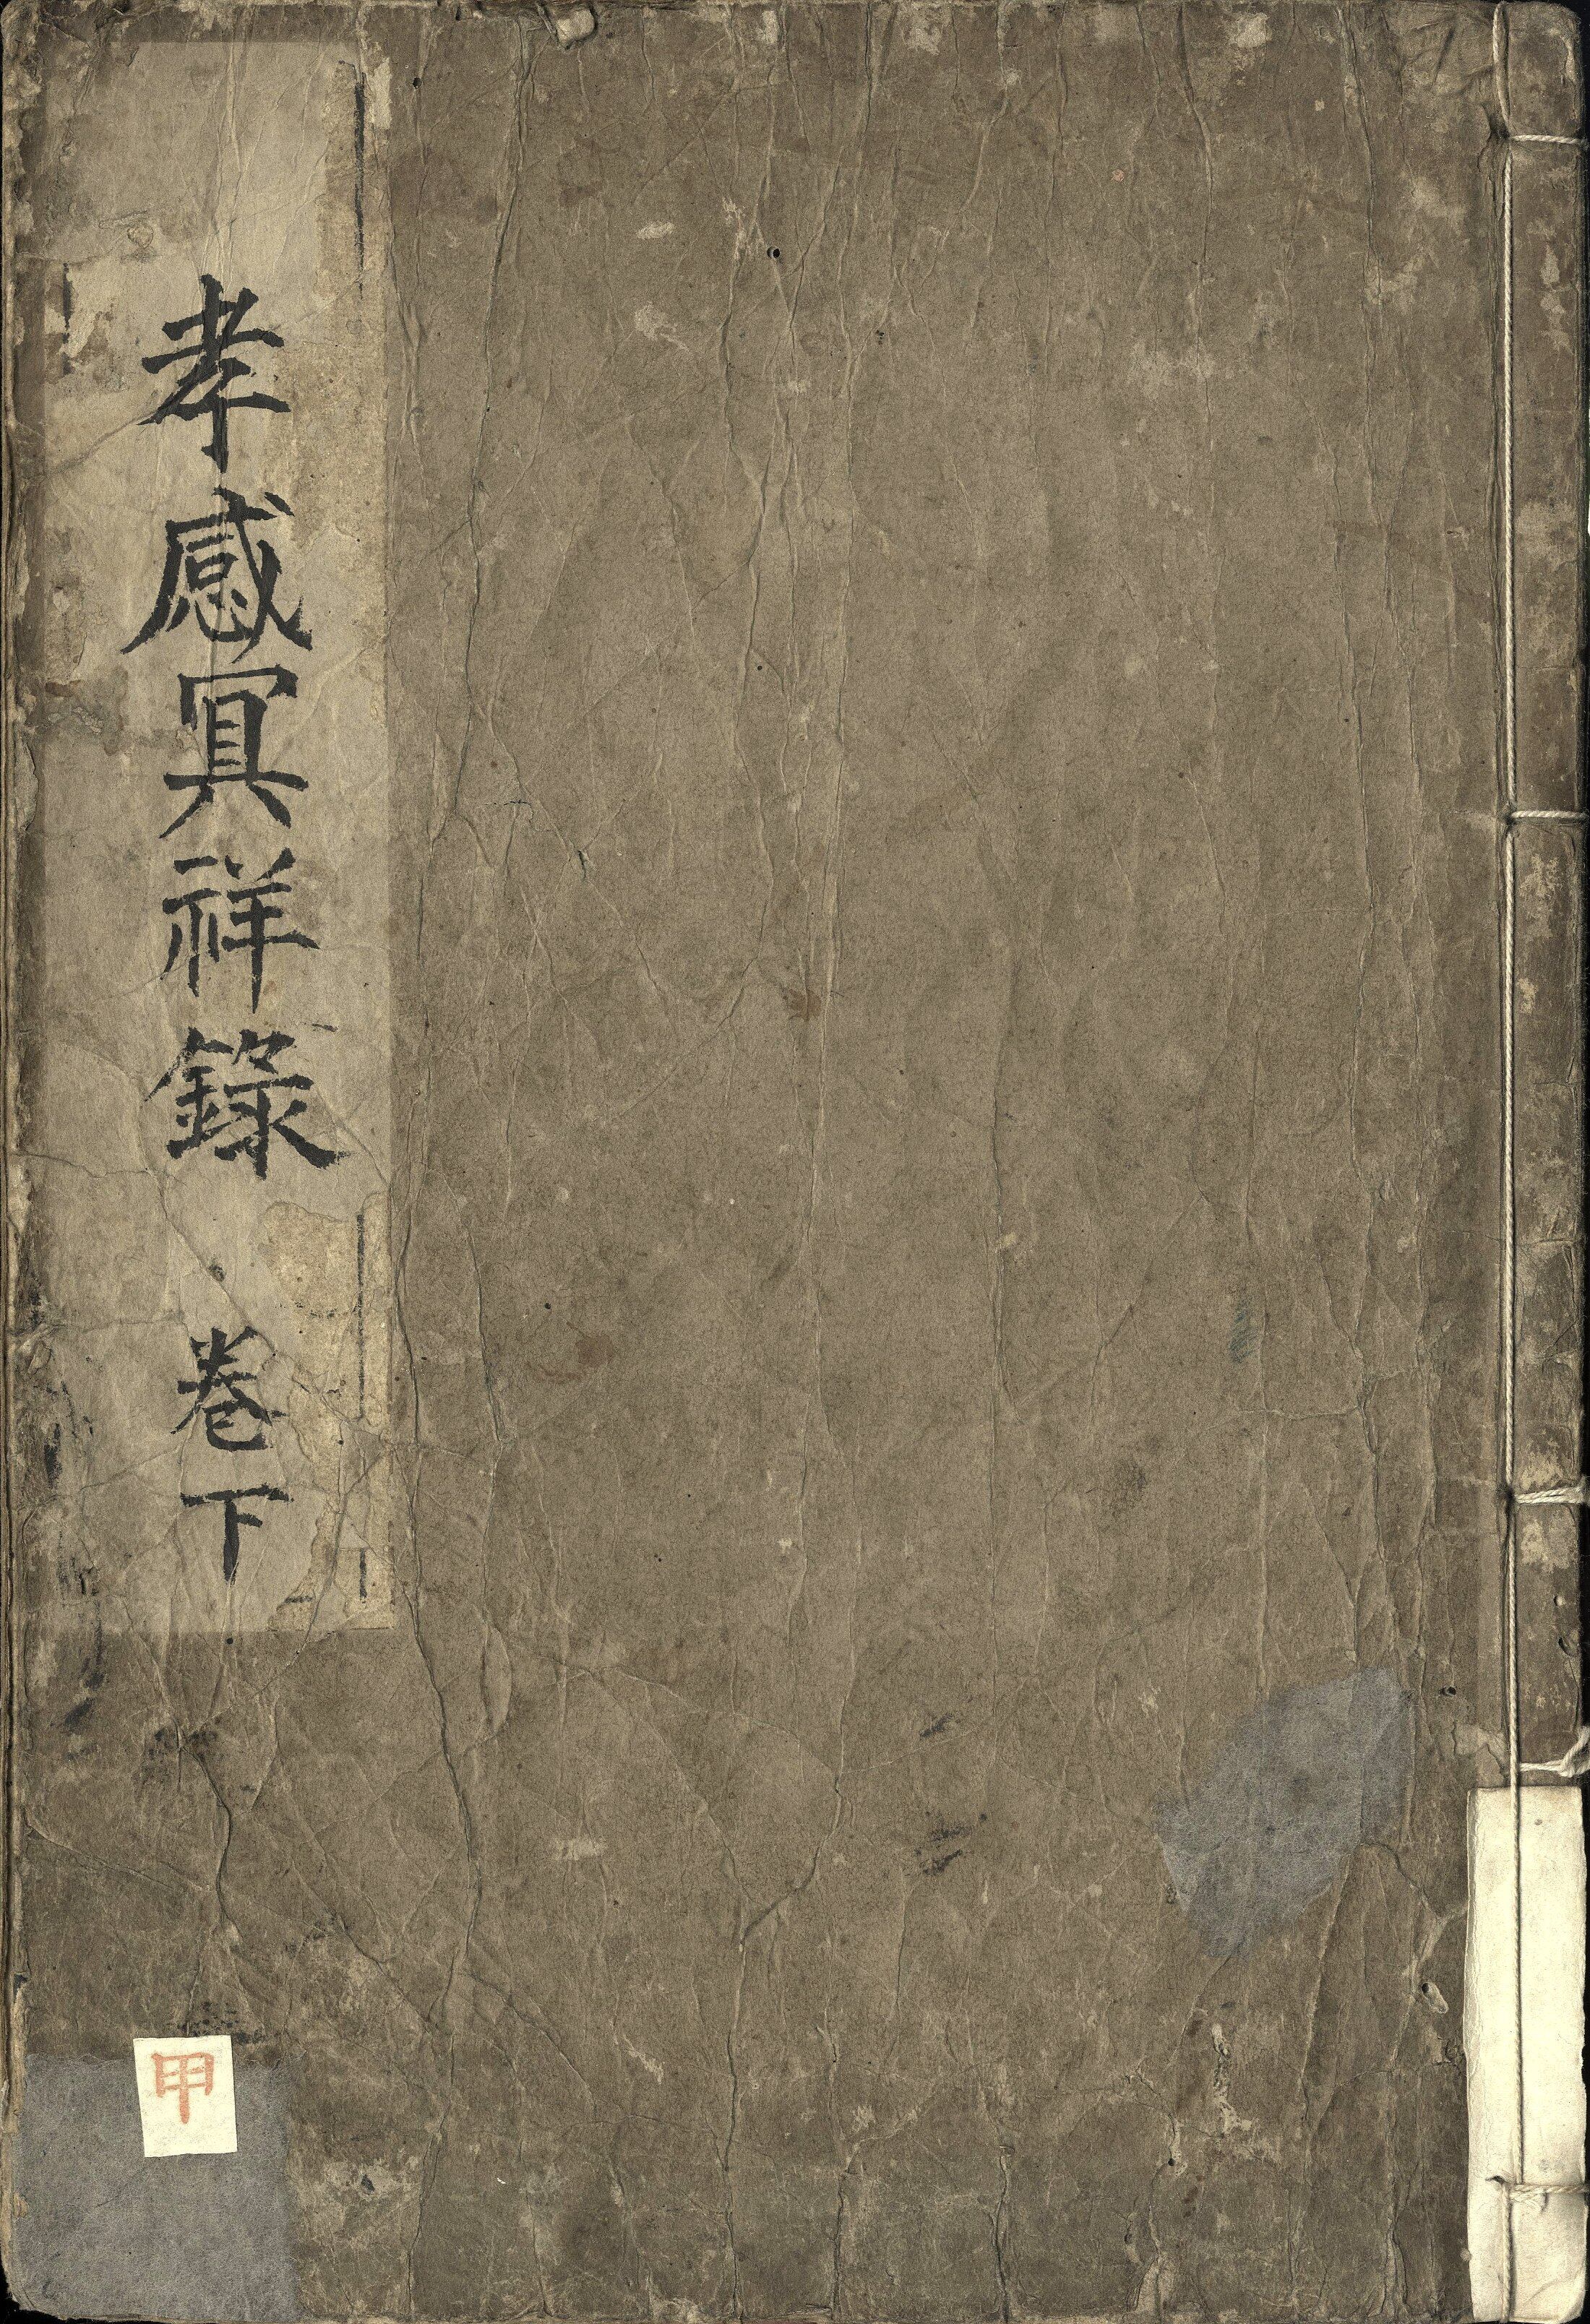 孝感冥祥錄 卷下
甲